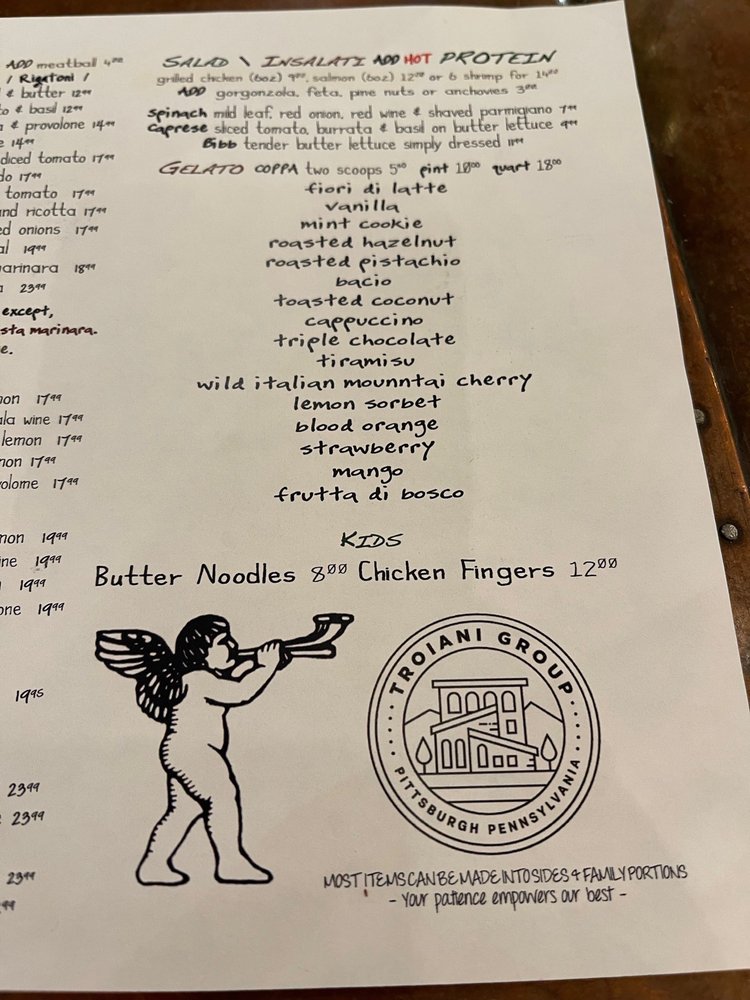 ADD meatball 4⁰⁰
/ Rigatoni /
& butter 12⁹⁹
o & basil 12⁹⁹
& provolone 14⁹⁹
e 14⁹⁹
diced tomato 17⁹⁹
do 17⁹⁹
tomato 17⁹⁹
and ricotta 17⁹⁹
ed onions 17⁹⁹
al 19⁹⁹
marinara 18⁹⁹
a 23⁹⁹
except,
sta marinara.
e.
non 17⁹⁹
ala wine 17⁹⁹
lemon 17⁹⁹
non 17⁹⁹
volome 17⁹⁹
non 19⁹⁹
ine 19⁹⁹
19⁹⁹
one 19⁹⁹
19⁹⁵
23⁹⁹
e 23⁹⁹
23⁹⁹
SALAD \ INSALATI ADD HOT PROTEIN
grilled chicken (6oz) 9⁰⁰, salmon (6oz) 12⁰⁰ or 6 shrimp for 14⁰⁰
ADD gorgonzola, feta, pine nuts or anchovies 3⁰⁰
Spinach mild leaf, red onion, red wine & shaved parmigiano 7⁹⁹
Caprese sliced tomato, burrata & basil on butter lettuce 9⁹⁹
Bibb tender butter lettuce simply dressed 11⁹⁹
GELATO COPPA two scoops 5⁵⁰ pint 10⁰⁰ quart 18⁰⁰
fiori di latte
vanilla
mint cookie
roasted hazelnut
roasted pistachio
bacio
toasted coconut
cappuccino
triple chocolate
tiramisu
wild italian mounntai cherry
lemon sorbet
blood orange
strawberry
mango
frutta di bosco
KIDS
Butter Noodles 8⁰⁰ Chicken Fingers 12⁰⁰
TROIANI GROUP
PITTSBURGH PENNSYLVANIA
MOST ITEMS CAN BE MADE INTO SIDES & FAMILY PORTIONS
- your patience empowers our best -